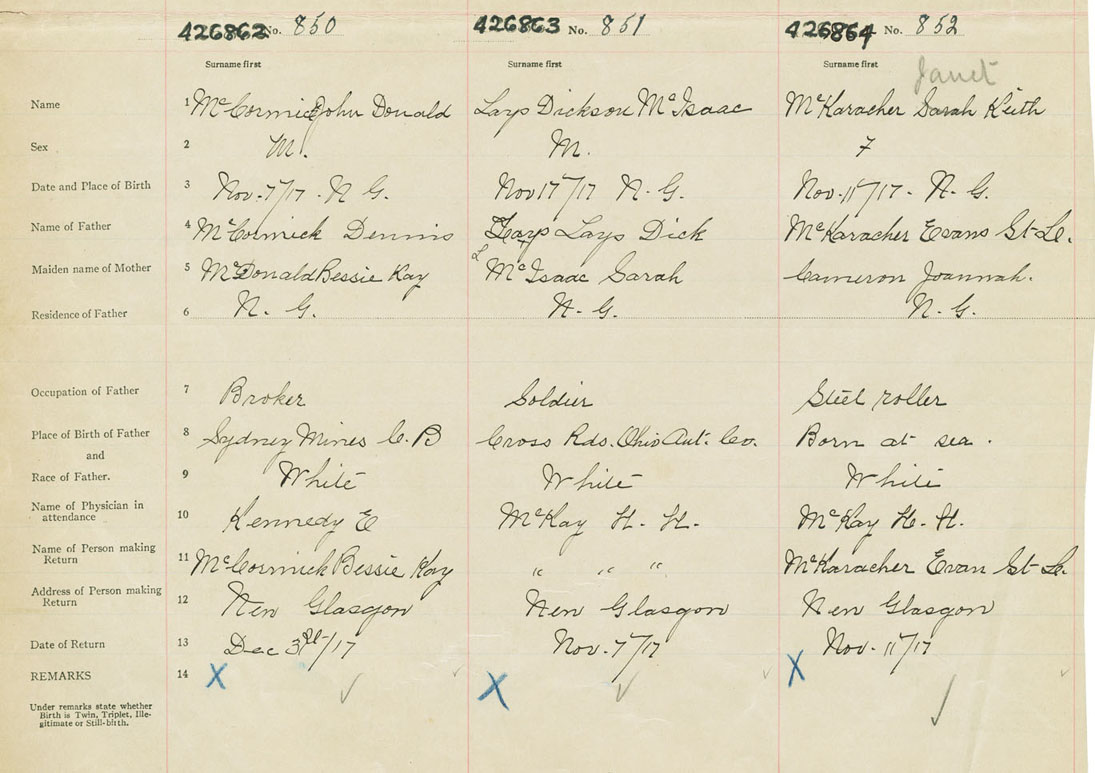 426862 No. 850 426863 No. 851 426864 No. 852
Surname first Surname first Surname first
Janet
Name 1 McCormick John Donald Lays Dickson McIsaac McKaracher Sarah Keith
Sex 2 M. M. F
Date and Place of Birth 3 Nov. 7/17. N G. Nov 17/17 N. G. Nov. 11/17. N. G.
Name of Father 4 McCormick Dennis Lays Dick McKaracher Evans St-Le.
Maiden name of Mother 5 McDonald Bessie Kay L McIsaac Sarah Cameron Joannah.
Residence of Father 6 N. G. N. G. N. G.
Occupation of Father 7 Broker Soldier Steel roller
Place of Birth of Father 8 Sydney Mines C. B Cross Rds. Ohio Ant. Co. Born at sea.
and
Race of Father. 9 White White White
Name of Physician in
attendance 10 Kennedy E McKay H. H. McKay H. H.
Name of Person making
Return 11 McCormick Bessie Kay " " " McKaracher Evan St-Le.
Address of Person making
Return 12 New Glasgow New Glasgow New Glasgow
Date of Return 13 Dec 3rd/17 Nov. 7/17 Nov. 11/17
REMARKS 14 X X X
Under remarks state whether
Birth is Twin, Triplet, Ille-
gitimate or Still-birth.